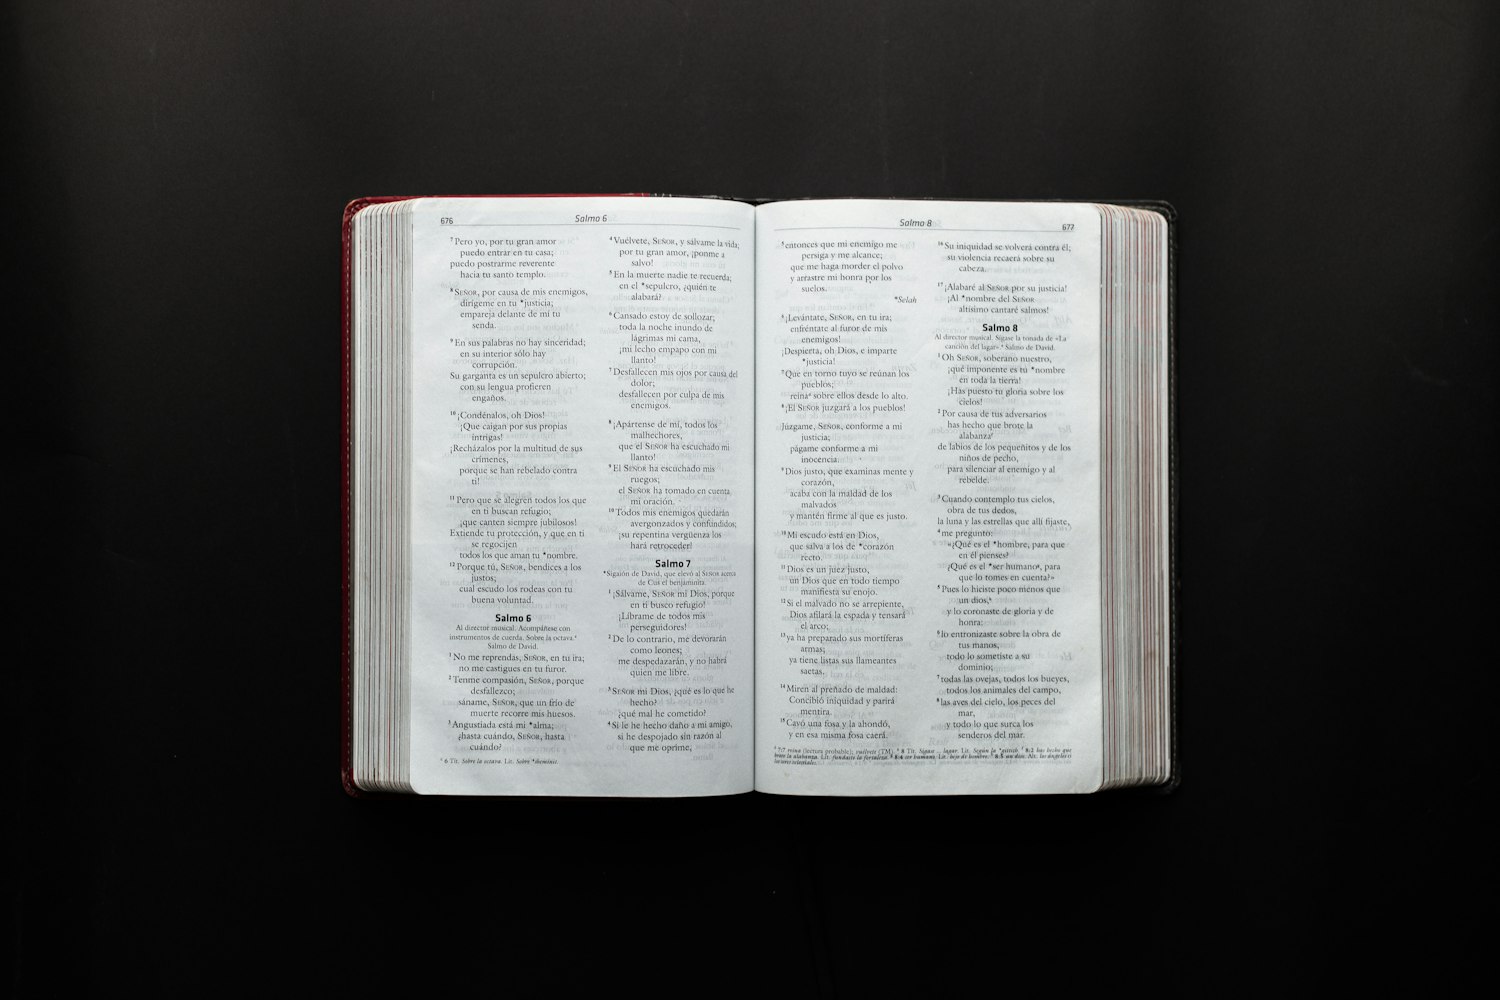 676
Salmo 6
⁷Pero yo, por tu gran amor
puedo entrar en tu casa;
puedo postrarme reverente
hacia tu santo templo.
⁸SEÑOR, por causa de mis enemigos,
dirígeme en tu *justicia;
empareja delante de mí tu
senda.
⁹En sus palabras no hay sinceridad;
en su interior sólo hay
corrupción.
Su garganta es un sepulcro abierto;
con su lengua profieren
engaños.
¹⁰¡Condénalos, oh Dios!
¡Que caigan por sus propias
intrigas!
¡Recházalos por la multitud de sus
crímenes,
porque se han rebelado contra
ti!
¹¹Pero que se alegren todos los que
en ti buscan refugio;
¡que canten siempre jubilosos!
Extiende tu protección, y que en ti
se regocijen
todos los que aman tu *nombre.
¹²Porque tú, SEÑOR, bendices a los
justos;
cual escudo los rodeas con tu
buena voluntad.
Salmo 6
Al director musical. Acompáñese con
instrumentos de cuerda. Sobre la octava.ᵃ
Salmo de David.
¹No me reprendas, SEÑOR, en tu ira;
no me castigues en tu furor.
²Tenme compasión, SEÑOR, porque
desfallezco;
sáname, SEÑOR, que un frío de
muerte recorre mis huesos.
³Angustiada está mi *alma;
¿hasta cuándo, SEÑOR, hasta
cuándo?
⁴Vuélvete, SEÑOR, y sálvame la vida;
por tu gran amor, ¡ponme a
salvo!
⁵En la muerte nadie te recuerda;
en el *sepulcro, ¿quién te
alabará?
⁶Cansado estoy de sollozar;
toda la noche inundo de
lágrimas mi cama,
¡mi lecho empapo con mi
llanto!
⁷Desfallecen mis ojos por causa del
dolor;
desfallecen por culpa de mis
enemigos.
⁸¡Apártense de mí, todos los
malhechores,
que el SEÑOR ha escuchado mi
llanto!
⁹El SEÑOR ha escuchado mis
ruegos;
el SEÑOR ha tomado en cuenta
mi oración.
¹⁰Todos mis enemigos quedarán
avergonzados y confundidos;
¡su repentina vergüenza los
hará retroceder!
Salmo 7
*Sigaión de David, que elevó al SEÑOR acerca
de Cus el benjaminita.
¹¡Sálvame, SEÑOR mi Dios, porque
en ti busco refugio!
¡Líbrame de todos mis
perseguidores!
²De lo contrario, me devorarán
como leones;
me despedazarán, y no habrá
quien me libre.
³SEÑOR mi Dios, ¿qué es lo que he
hecho?
¿qué mal he cometido?
⁴Si le he hecho daño a mi amigo,
si he despojado sin razón al
que me oprime,
ᵃ 6 Tít. Sobre la octava. Lit. Sobre *sheminit.
Salmo 8
677
⁵entonces que mi enemigo me
persiga y me alcance;
que me haga morder el polvo
y arrastre mi honra por los
suelos.
*Selah
⁶¡Levántate, SEÑOR, en tu ira;
enfréntate al furor de mis
enemigos!
¡Despierta, oh Dios, e imparte
*justicia!
⁷Que en torno tuyo se reúnan los
pueblos;
reinaᵃ sobre ellos desde lo alto.
⁸¡El SEÑOR juzgará a los pueblos!
Júzgame, SEÑOR, conforme a mi
justicia;
págame conforme a mi
inocencia.
⁹Dios justo, que examinas mente y
corazón,
acaba con la maldad de los
malvados
y mantén firme al que es justo.
¹⁰Mi escudo está en Dios,
que salva a los de *corazón
recto.
¹¹Dios es un juez justo,
un Dios que en todo tiempo
manifiesta su enojo.
¹²Si el malvado no se arrepiente,
Dios afilará la espada y tensará
el arco;
¹³ya ha preparado sus mortíferas
armas;
ya tiene listas sus llameantes
saetas.
¹⁴Miren al preñado de maldad:
Concibió iniquidad y parirá
mentira.
¹⁵Cavó una fosa y la ahondó,
y en esa misma fosa caerá.
¹⁶Su iniquidad se volverá contra él;
su violencia recaerá sobre su
cabeza.
¹⁷¡Alabaré al SEÑOR por su justicia!
¡Al *nombre del SEÑOR
altísimo cantaré salmos!
Salmo 8
Al director musical. Sígase la tonada de «La
canción del lagar».ᵃ Salmo de David.
¹Oh SEÑOR, soberano nuestro,
¡qué imponente es tu *nombre
en toda la tierra!
¡Has puesto tu gloria sobre los
cielos!
²Por causa de tus adversarios
has hecho que brote la
alabanza
de labios de los pequeñitos y de los
niños de pecho,
para silenciar al enemigo y al
rebelde.
³Cuando contemplo tus cielos,
obra de tus dedos,
la luna y las estrellas que allí fijaste,
⁴me pregunto:
«¿Qué es el *hombre, para que
en él pienses?
¿Qué es el *ser humano, para
que lo tomes en cuenta?»
⁵Pues lo hiciste poco menos que
un dios,
y lo coronaste de gloria y de
honra;
⁶lo entronizaste sobre la obra de
tus manos,
todo lo sometiste a su
dominio;
⁷todas las ovejas, todos los bueyes,
todos los animales del campo,
⁸las aves del cielo, los peces del
mar,
y todo lo que surca los
senderos del mar.
7:7 reina (lectura probable); vuélvete (TM). 8 Tít. Sígase ... lagar. Lit. Según la *gittith. 8:2 has hecho que
brote la alabanza. Lit. fundaste la fortaleza. 8:4 ser humano. Lit. hijo de hombre. 8:5 un dios. Alt. los ángeles o
los seres celestiales.